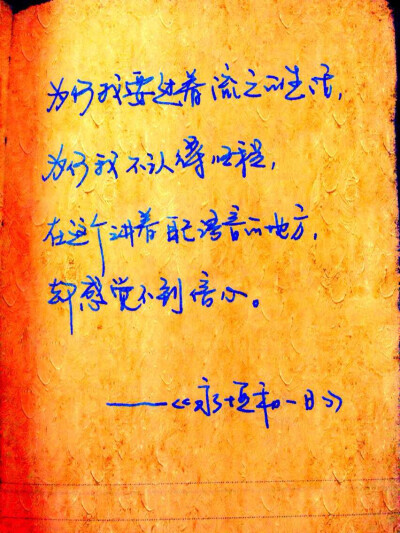 为何我要过着流亡的生活，
为何我不认得归程，
在这个讲着配语音的地方，
却感觉不到
——《永恒和一日》